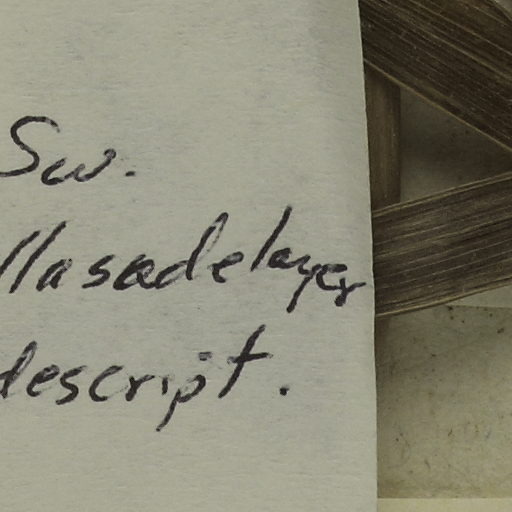 Sw.
llasadelayer
descript.